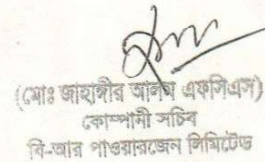 (মোঃ জাহাঙ্গীর আলম এফসিএস)
কোম্পানী সচিব
বি-আর পাওয়ারজেন লিমিটেড